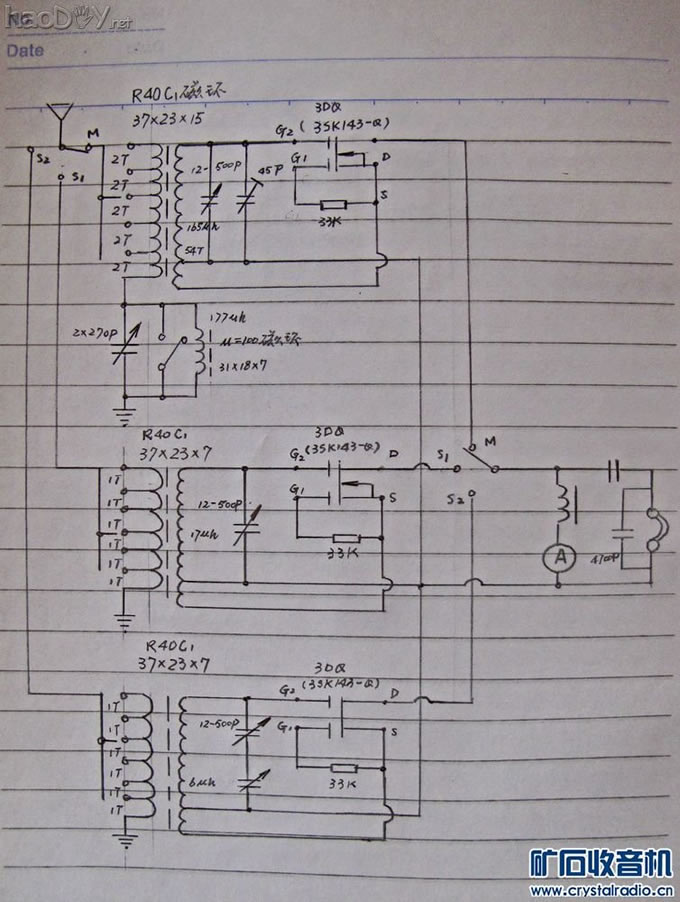 haoDIY.net
No
Date
R40C1磁环
37×23×15
3DQ
(3SK143-Q)
M
S2
S1
2T
2T
2T
2T
2T
12-500P
45P
165μh
54T
G2
G1
D
S
33K
2×270P
177μh
μ=100磁环
31×18×7
R40C1
37×23×7
3DQ
(3SK143-Q)
G2
G1
D
S
1T
1T
1T
1T
1T
12-500P
17μh
33K
S1
M
S2
A
4700P
R40C1
37×23×7
3DQ
(3SK143-Q)
G2
G1
D
S
1T
1T
1T
1T
1T
12-500P
6μh
33K
矿石收音机
www.crystalradio.cn